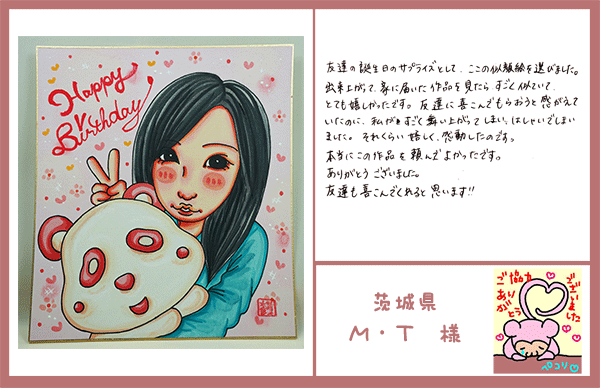 Happy
Birthday
友達の誕生日のサプライズとして、ここの似顔絵を選びました。
出来上がって、家に届いた作品を見たら、すごく似ていて、
とても嬉しかったです。友達に喜んでもらおうと考えて
いたのに、私がすごく舞い上がってしまい、はしゃいでしまい
ました。それくらい嬉しく、感動したのです。
本当にこの作品を頼んでよかったです。
ありがとうございました。
友達も喜んでくれると思います!!
茨城県
M・T 様
ご協力
ありがとう
ございました
ペコリ